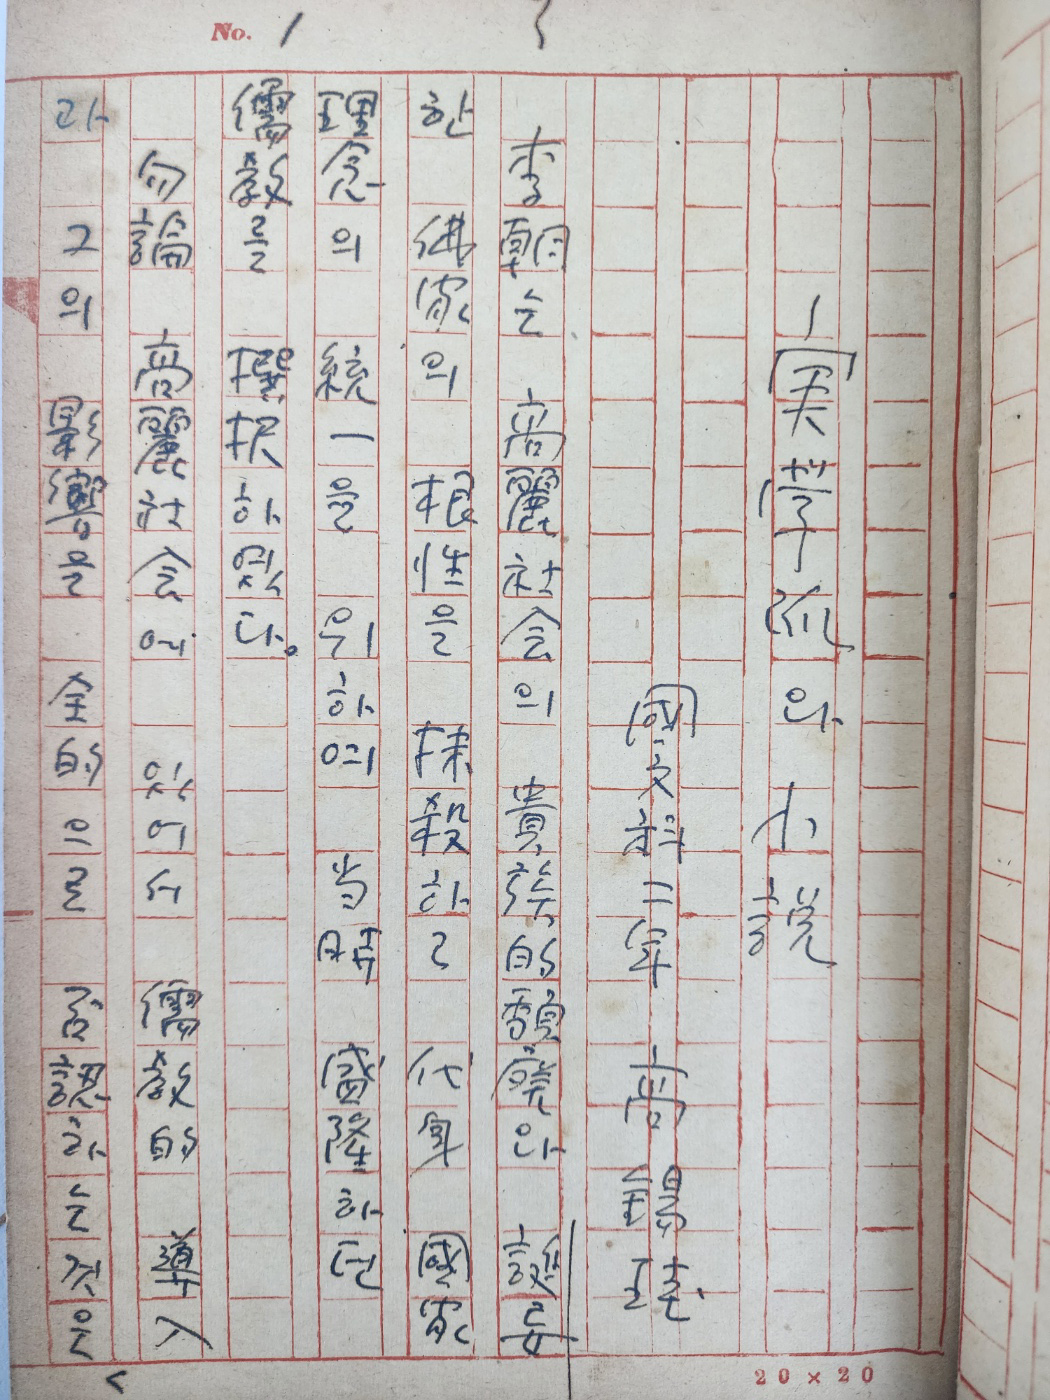 No. 1
实學派와 小說
國文科 二年 高錫珪
李朝는 高麗社会의 貴族的 頹廢와 護妄
한 佛家의 根性을 抹殺하고 代身 國家
理念의 統一을 위하여 当時 盛隆하던
儒敎를 撰択하였다。
勿論 高麗社会에 있어서 儒敎的 導入
과 그의 影響을 全的으로 否認하는것은
20×20